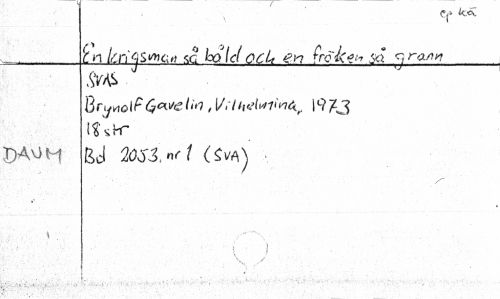 ep kä
En krigsman så båld och en fröken så grann
SVAS
Brynolf Gavelin, Vilhelmina, 1973
18 str
DAUM Bd 2053. nr 1 (SVA)